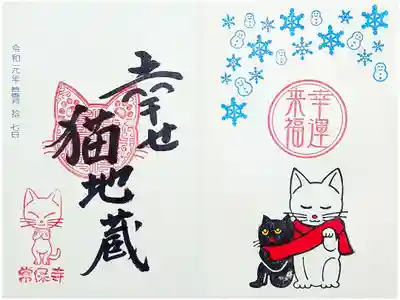 幸せ
猫地蔵
令和元年 拾七日
常保寺
幸運
来福